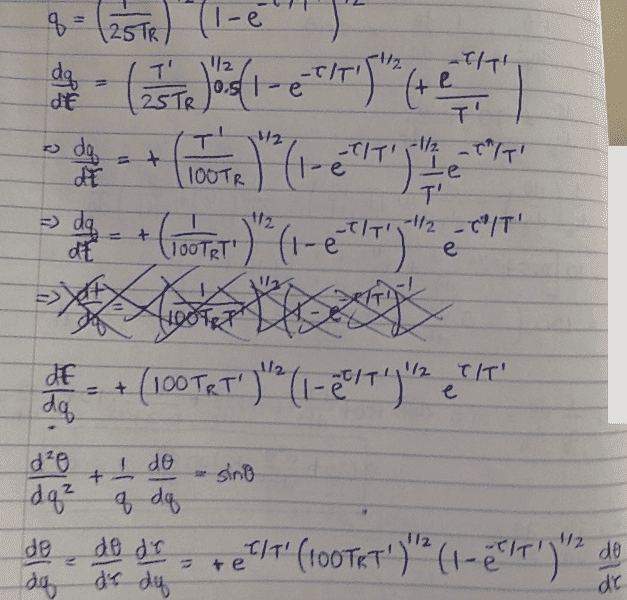 q = (1/25T_R)^1/2 (1-e^-τ/T')^1/2
dq/dτ = (T'/25T_R)^1/2 0.5(1-e^-τ/T')^-1/2 (+e^-τ/T'/T')
⇒ dq/dτ = + (T'/100T_R)^1/2 (1-e^-τ/T')^-1/2 1/T' e^-τ/T'
⇒ dq/dτ = + (1/100T_RT')^1/2 (1-e^-τ/T')^-1/2 e^-τ/T'
⇒ dτ/dq = (1/100T_RT')^1/2 (1-e^-τ/T')^-1
dτ/dq = + (100T_RT')^1/2 (1-e^-τ/T')^1/2 e^τ/T'
d²θ/dq² + 1/q dθ/dq = sinθ
dθ/dq = dθ/dτ dτ/dq = + e^τ/T' (100T_RT')^1/2 (1-e^-τ/T')^1/2 dθ/dτ